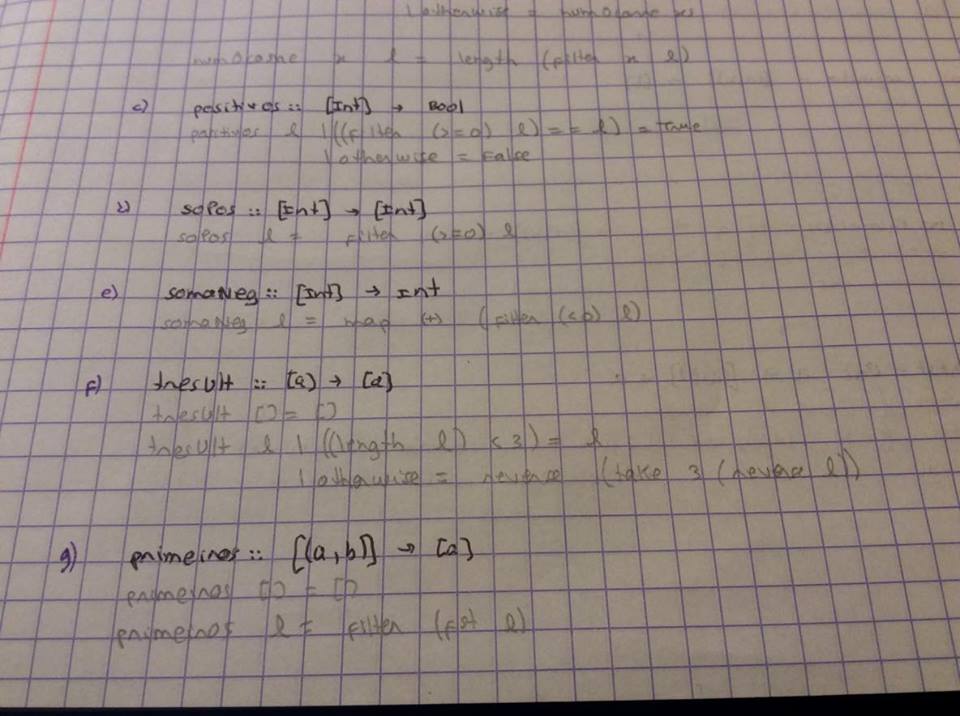 | otherwise = numOcorre xs
numOcorre x l = length (filter x l)
c) positivos :: [Int] → Bool
positivos l | ((filter (>=0) l) == l) = True
| otherwise = False
d) soPos :: [Int] → [Int]
soPos l = filter (>=0) l
e) somaNeg :: [Int] → Int
somaNeg l = map (+) (filter (<0) l)
f) tresUlt :: [a] → [a]
tresUlt [] = []
tresUlt l | ((length l) < 3) = l
| otherwise = reverse (take 3 (revere l))
g) primeiros :: [(a,b)] → [a]
primeiros [] = []
primeiros l = filter (fst l)